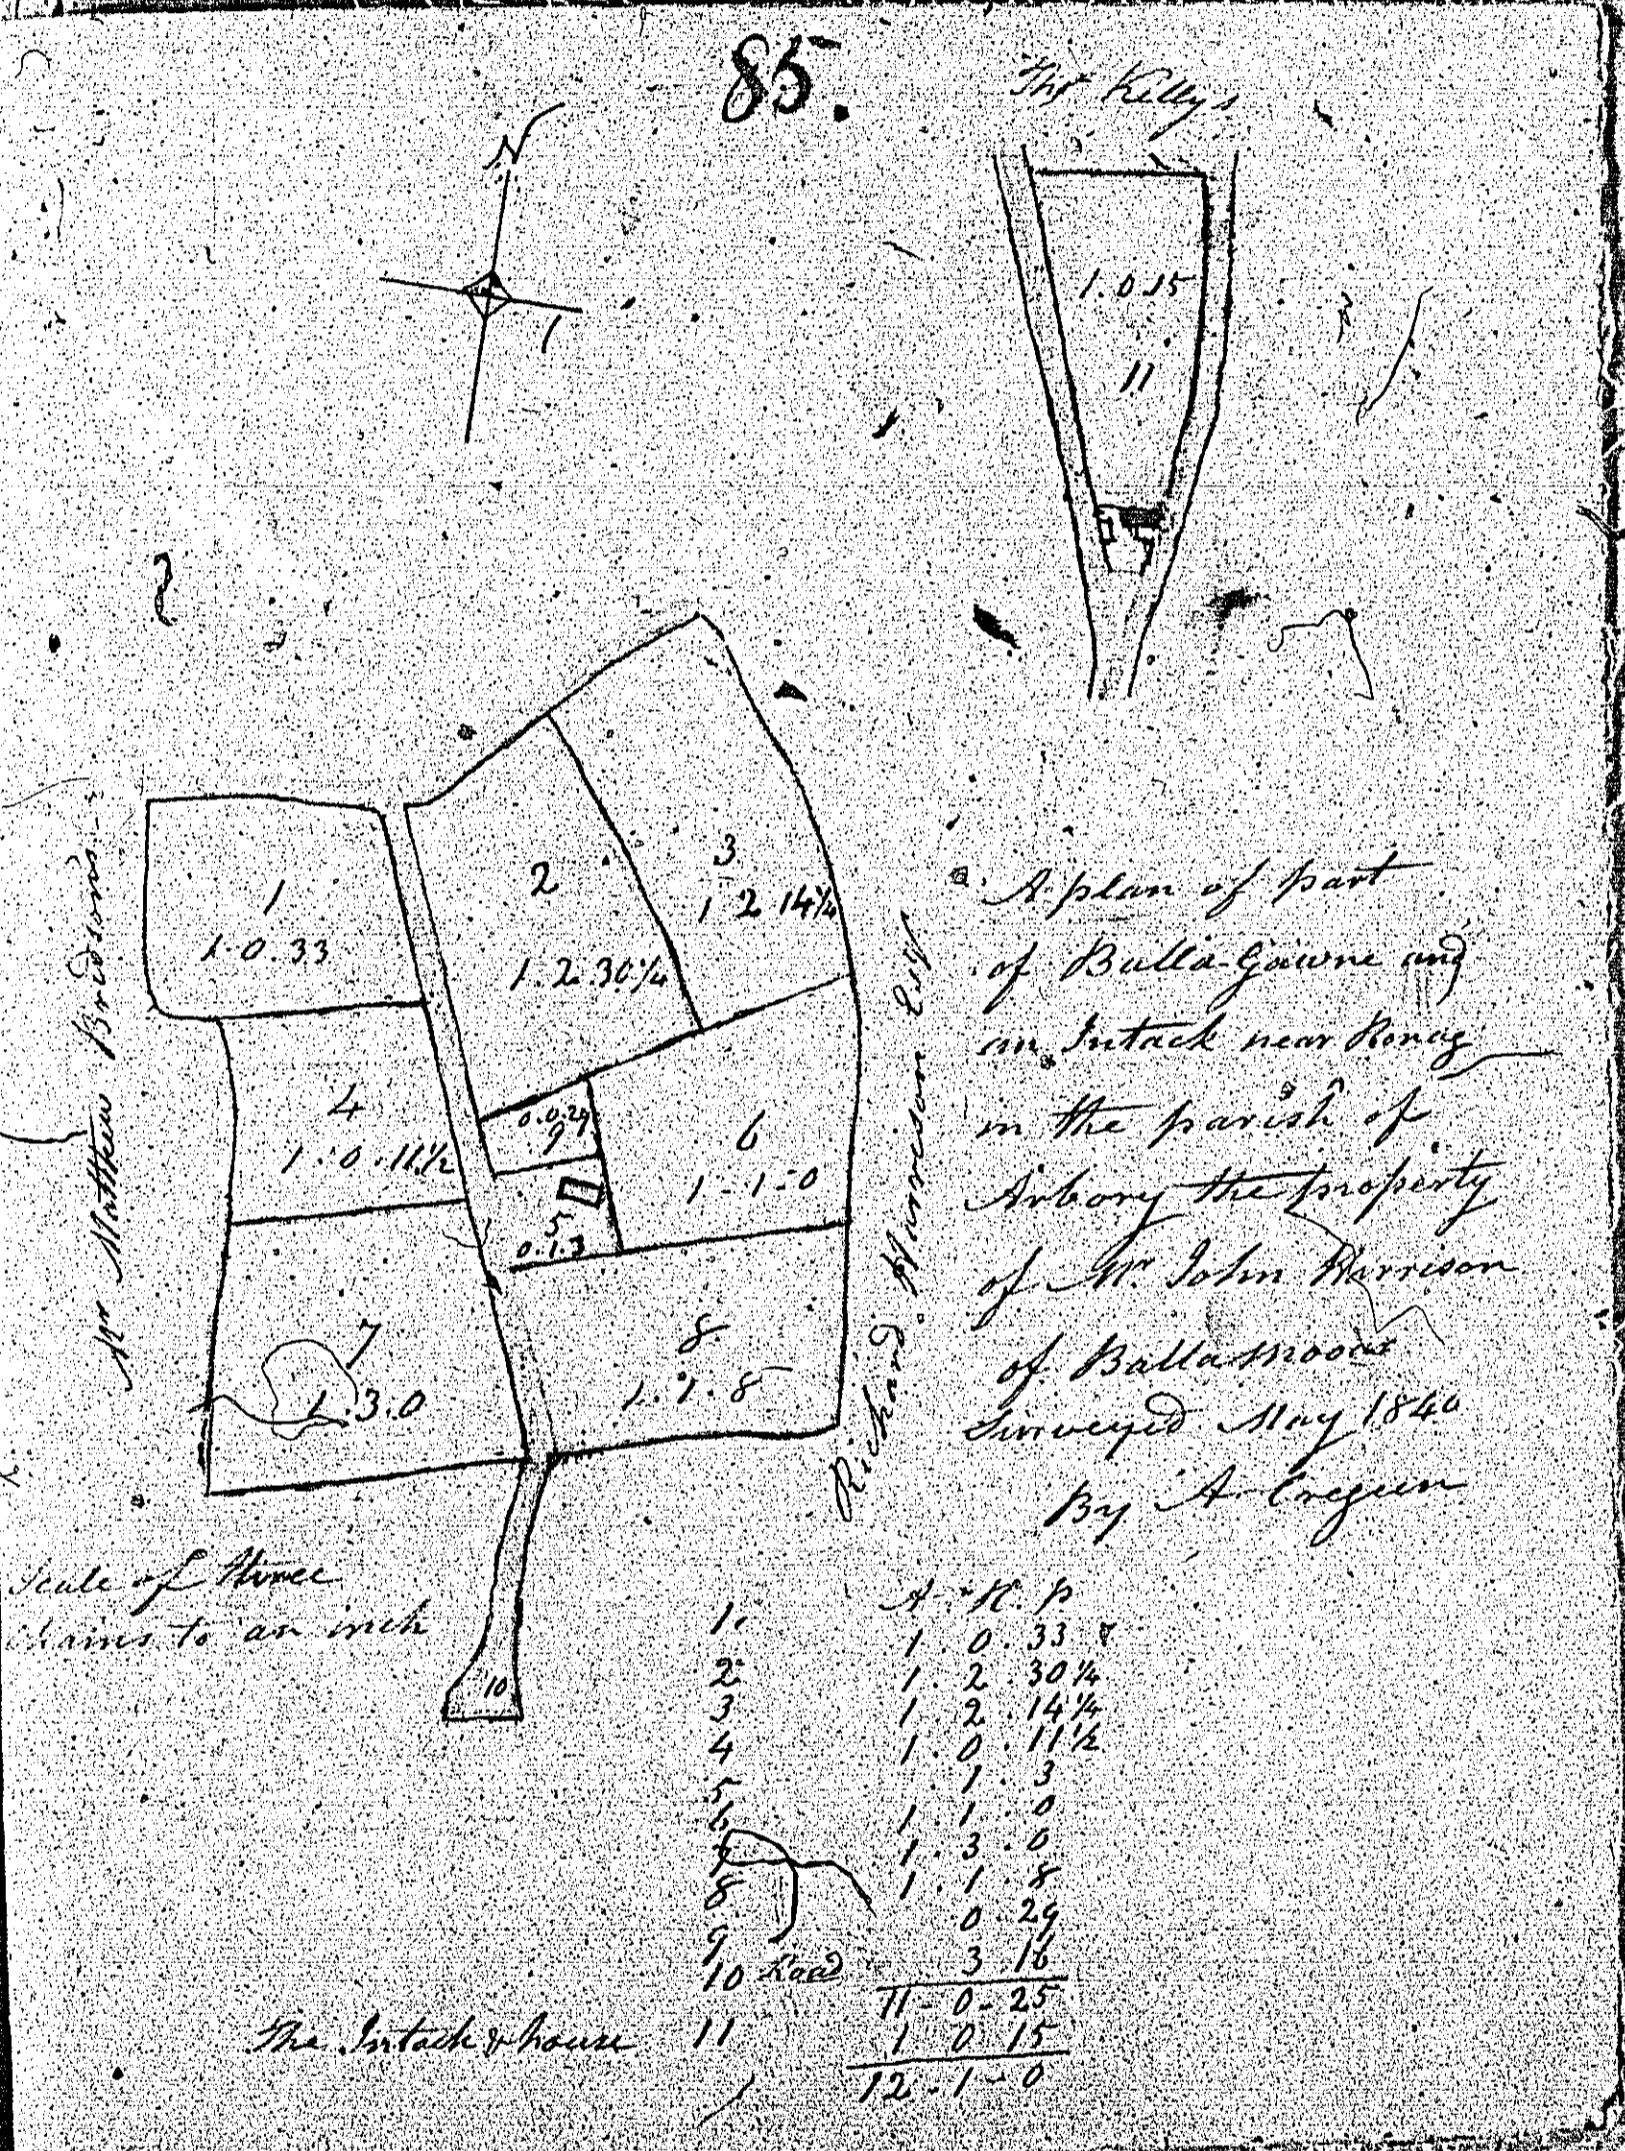 85.
Thos Kelly's
N
1.0.15
11
1
1.0.33
2
1.2.30¼
3
1 2 14¼
4
1.0.11½
0.0.29
9
5
0.1.3
6
1-1-0
7
1.3.0
8
1.1.8
10
Mr Matthew Bridsons
Richard Harrison Esqr
A plan of part
of Balla-Gawne and
an Intack near Ronag
in the parish of
Arbory the property
of Mr. John Harrison
of Ballamooar
Surveyed May 1840
By A. Cregeen
Scale of three
chains to an inch
A. R. P
1. 1.0.33
2 1.2.30¼
3 1 2.14¼
4 1.0.11½
5 1.3
6 1.1.0
7 1.3.0
8 1.1.8
9 0.29
10 Road 3 16
11-0-25
The Intack & house 11 1 0 15
12-1-0